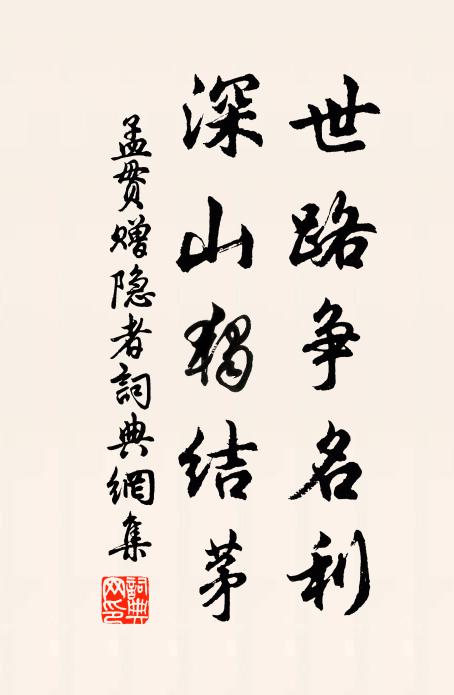 世路争名利
深山獨结茅
孟贯赠隐者詞典網集
詞典网印